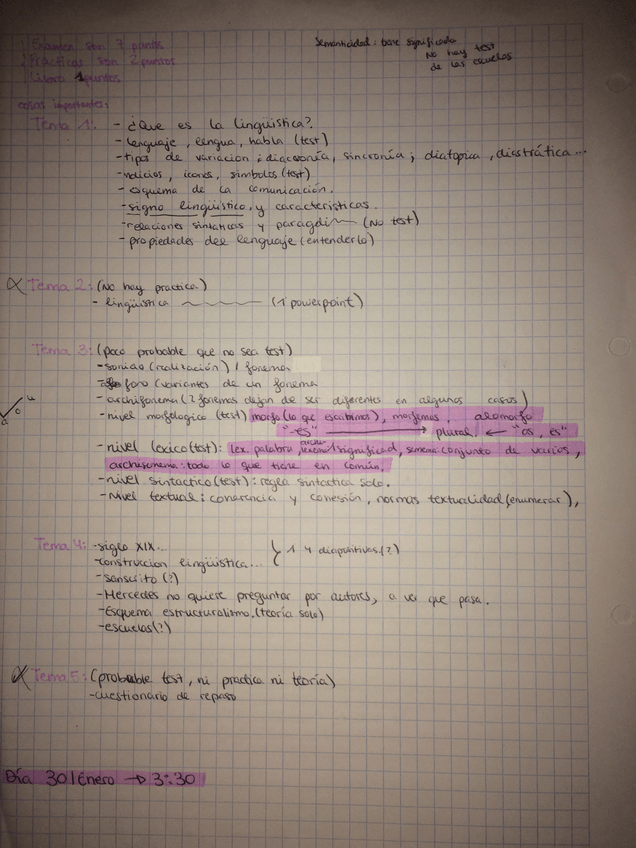 1 Examen son 7 puntos
2 Prácticas son 2 puntos
Libro 1 puntos
Semanticidad: tiene significado
No hay test
de las escuelas
cosas importantes:
Tema 1: - ¿Que es la lingüística?
- lenguaje, lengua, habla (test)
- tipos de variacion: diacronía, sincronía; diatopica, diastrática...
- indicios, iconos, simbolos (test)
- esquema de la comunicación.
- signo lingüístico, y caracteristicas.
- relaciones sintaticas y paradig (No test)
- propiedades del lenguaje (entenderlo)
Tema 2: (No hay practica)
- lingüistica (1 powerpoint)
Tema 3: (poco probable que no sea test)
- sonido (realización) / fonema
- fono (variantes de un fonema
- archifonema (2 fonemas dejan de ser diferentes en algunos casos)
- nivel morfologico (test) morfo (lo que escribimos), morfemas, alomorfo
"-es" → plural ← "os, es"
- nivel lexico (test): lex. palabra, 1 significad, semema: conjunto de varios,
archisemema: todo lo que tiene en común.
- nivel sintactico (test): regla sintactica solo.
- Nivel textual: coherencia y cohesión, normas texturalidad (enumerar),
Tema 4: - siglo XIX...
- construccion lingüistica... 1 y diapositivas (?)
- sanscrito (?)
- Mercedes no quiere preguntar por autores, a ver que pasa.
- Esquema estructuralismo. (teoría solo)
- escuelas (?)
Tema 5: (probable test, ni practica ni teoría)
- cuestionario de repaso
Día 30/Enero → 3:30